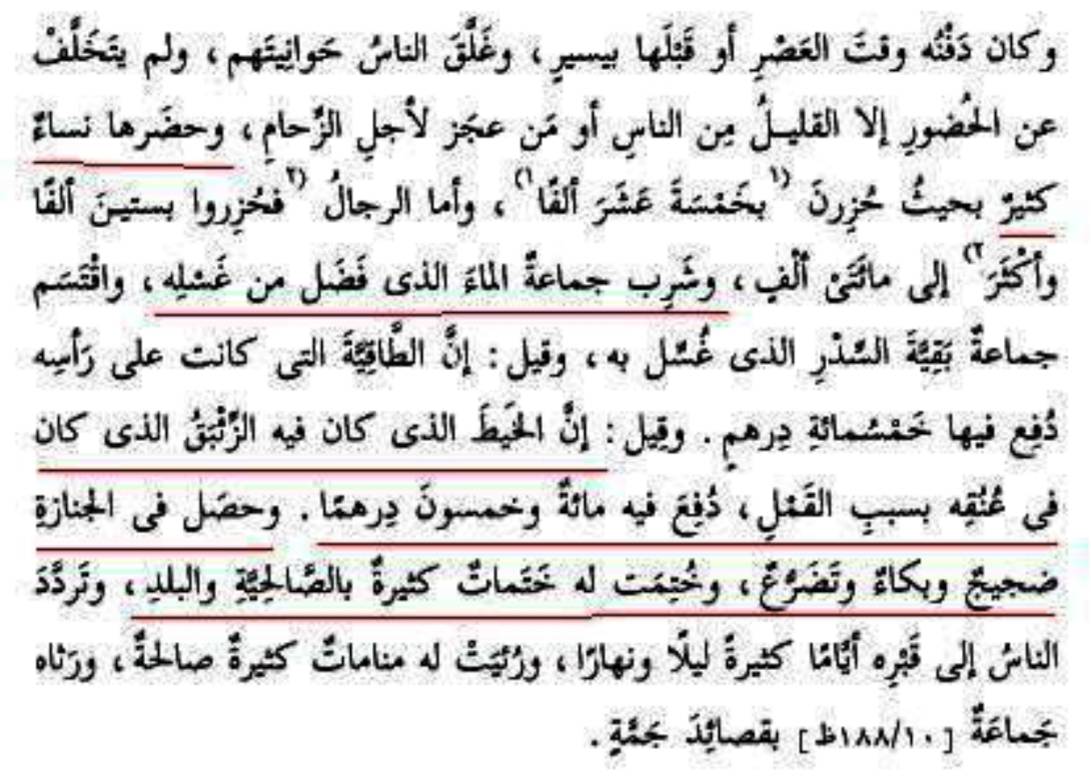 وكان دَفْنُه وقتَ العَصْرِ أو قَبْلَها بيسيرٍ، وغَلَّقَ الناسُ حَوانِيتَهم، ولم يتَخَلَّفْ
عن الحُضورِ إلا القليلُ مِن الناسِ أو مَن عجَز لأجلِ الزِّحامِ، وحضَرها نساءٌ
كثيرٌ بحيثُ حُزِرنَ ⁽¹بخَمْسَةَ عَشَرَ ألفًا¹⁾، وأما الرجالُ ⁽²فحُزِروا بستينَ ألفًا
وأكْثَرَ²⁾ إلى مائَتَىْ ألْفٍ، وشَرِب جماعةٌ الماءَ الذى فَضَل من غَسْلِه، واقْتَسَم
جماعةٌ بَقِيَّةَ السِّدْرِ الذى غُسِّل به، وقيل: إنَّ الطَّاقِيَّةَ التى كانت على رَأسِه
دُفِع فيها خَمْسُمائةِ دِرهمٍ. وقِيل: إنَّ الخَيطَ الذى كان فيه الزِّئْبَقُ الذى كان
فى عُنُقِه بسببِ القَمْلِ، دُفِعَ فيه مائةٌ وخمسونَ دِرهمًا. وحصَل فى الجنازةِ
ضجيجٌ وبكاءٌ وتَضَرُّعٌ، وخُتِمَت له خَتَماتٌ كثيرةٌ بالصَّالحِيَّةِ والبلدِ، وتَردَّدَ
الناسُ إلى قَبْرِه أيَّامًا كثيرةً ليلًا ونهارًا، ورُئِيَتْ له مناماتٌ كثيرةٌ صالحةٌ، ورَثاه
جَماعَةٌ [١٨٨/١٠ظ] بقصائِدَ جَمَّةٍ.